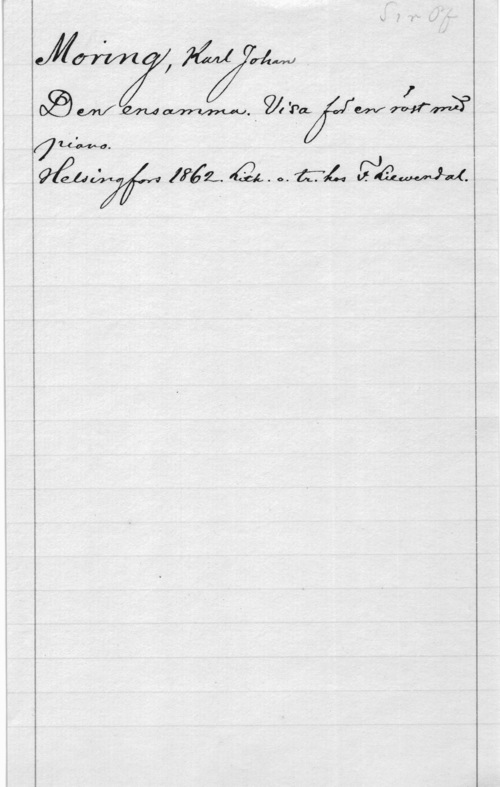 Sv r Öf
Moring, Karl Johan
Den ensamma. Visa för en röst med
piano.
Helsingfors 1862. Lith. o. tr. hos F. Liewendal.